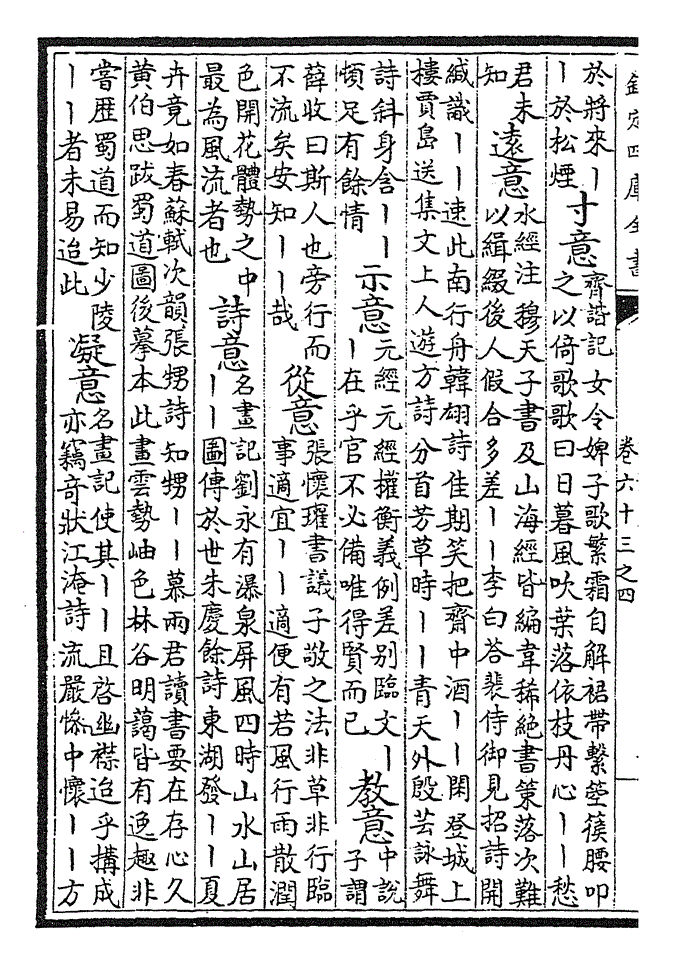 欽定四庫全書 卷六十三之四
於將來丨
丨於松煙
寸意
齊諧記女令婢子歌繁霜自解裙帶繫箜篌腰叩
之以倚歌歌曰日暮風吹葉落依枝丹心丨丨愁
君未
知
遠意
水經注穆天子書及山海經皆編韋稀絶書策落次難
以緝綴後人假合多差丨丨李白答裴侍御見招詩開
緘識丨丨速此南行舟韓翃詩佳期笑把齋中酒丨丨閑登城上
樓賈島送集文上人遊方詩分首芳草時丨丨青天外殷芸詠舞
詩斜身含丨丨
頓足有餘情
示意
元經元經權衡義例差别臨文丨
丨在乎官不必備唯得賢而已
教意
中說
子謂
薛收曰斯人也旁行而
不流矣安知丨丨哉
從意
張懷瓘書議子敬之法非草非行臨
事適宜丨丨適便有若風行雨散潤
色開花體勢之中
最為風流者也
詩意
名畫記劉永有瀑泉屏風四時山水山居
丨丨圖傳於世朱慶餘詩東湖發丨丨夏
卉竟如春蘇軾次韻張甥詩知甥丨丨慕兩君讀書要在存心久
黄伯思跋蜀道圖後摹本此畫雲勢岫色林谷明藹皆有逸趣非
嘗歴蜀道而知少陵
丨丨者未易迨此
凝意
名畫記使其丨丨且啓幽襟迨乎構成
亦竊奇狀江淹詩流嚴慘中懷丨丨方